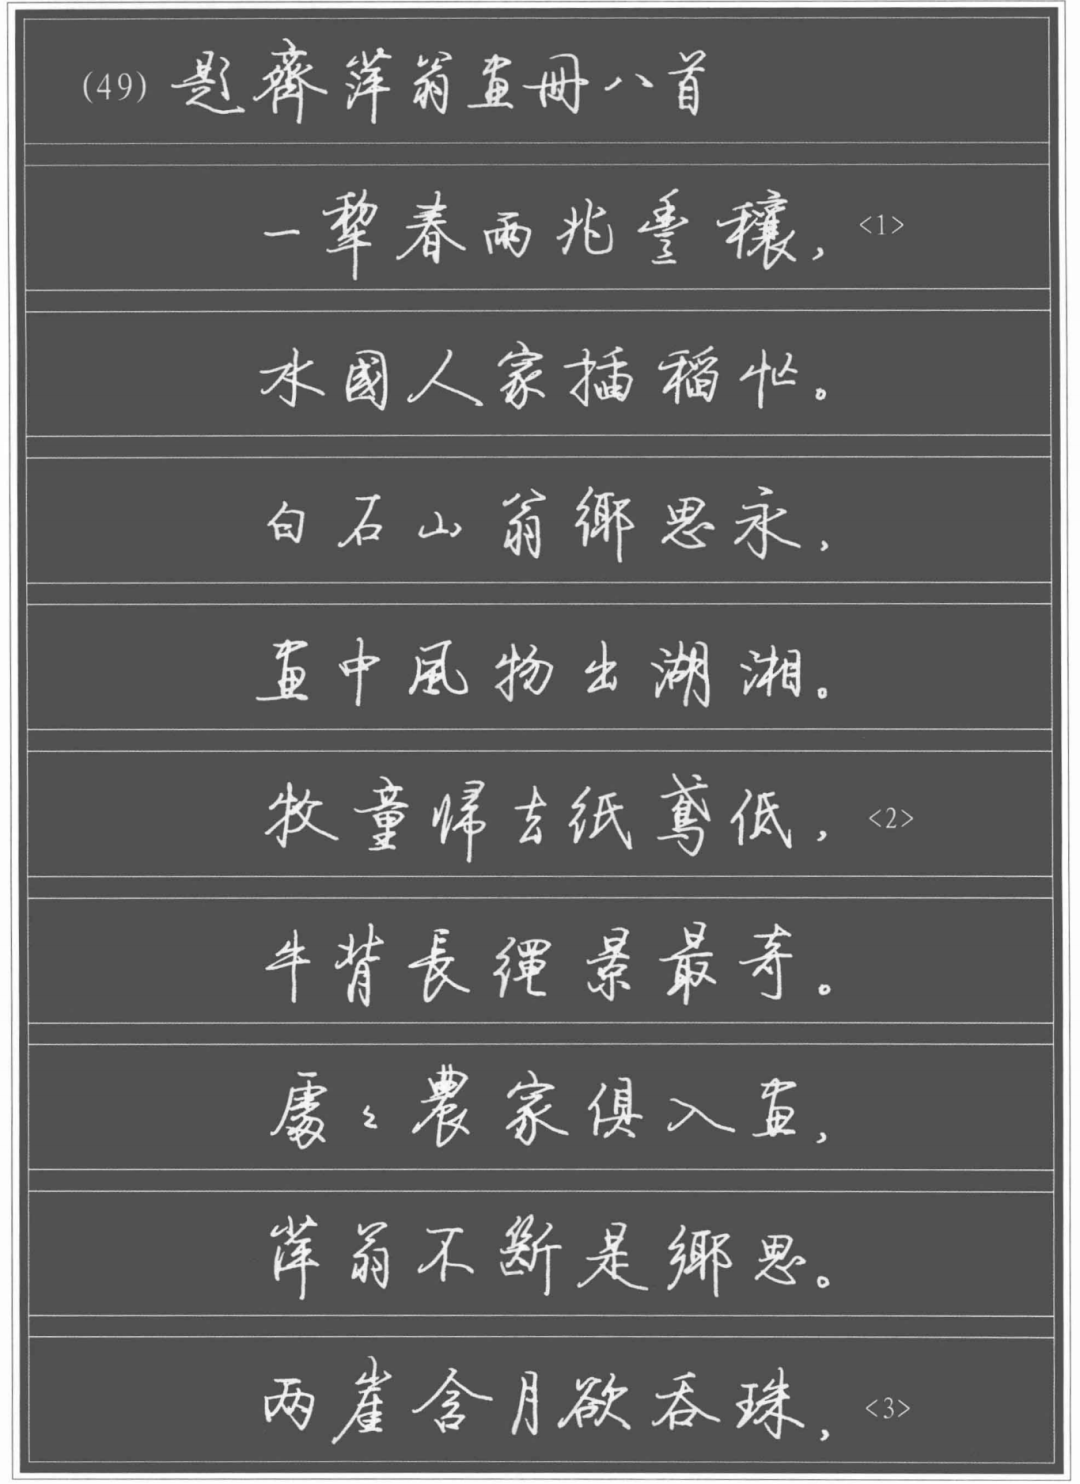 (49) 題齊萍翁畫冊八首
一犂春雨兆豐穰，<1>
水國人家插稻忙。
白石山翁鄉思永，
畫中風物出湖湘。
牧童歸去紙鳶低，<2>
牛背長繩景最奇。
處々農家俱入畫，
萍翁不斷是鄉思。
两崖含月欲吞珠，<3>